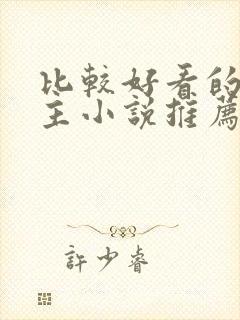 比較好看的
主小說推薦
許少睿